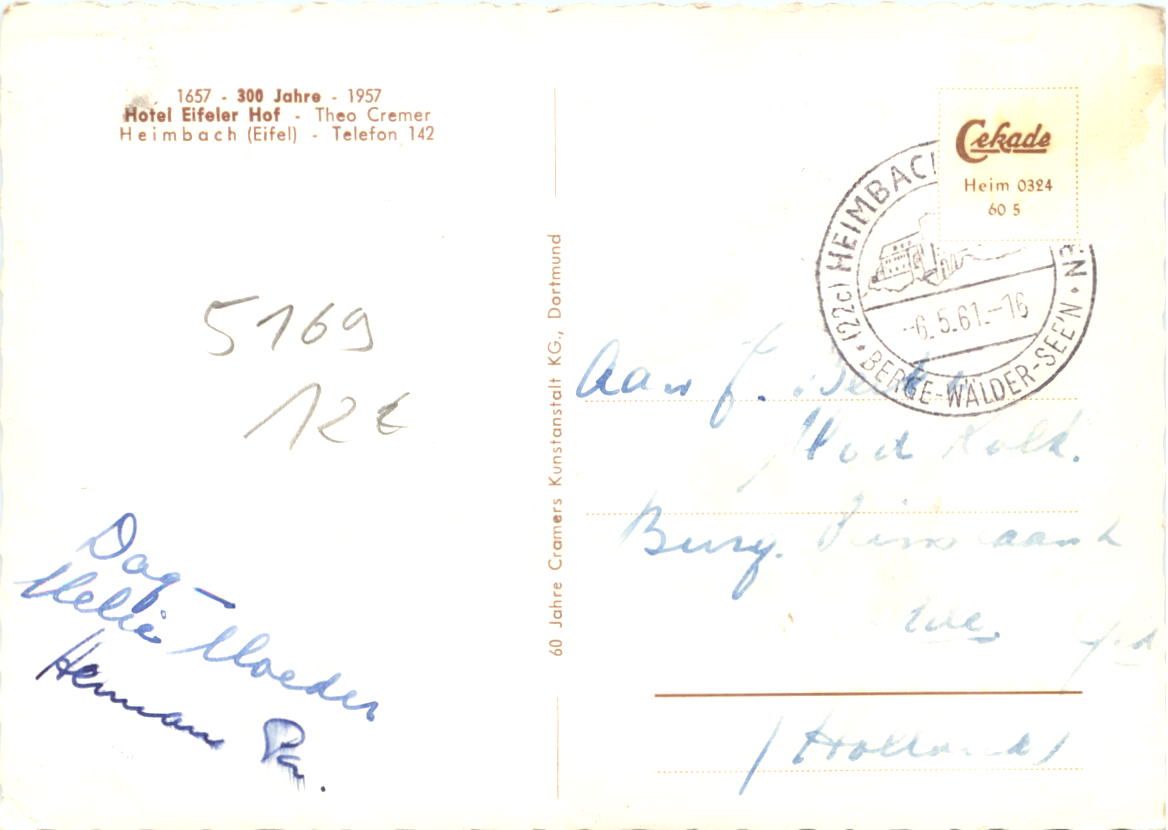 1657 - 300 Jahre - 1957
Hotel Eifeler Hof - Theo Cremer
Heimbach (Eifel) - Telefon 142
5169
12€
Dag -
Moeder
Herman Pa.
60 Jahre Cramers Kunstanstalt KG., Dortmund
Cekade
Heim 0324
60 5
(22c) HEIMBACH
-6.5.61.-16
BERGE-WÄLDER-SEE'N
Aan J.
Burg.
(Holland)